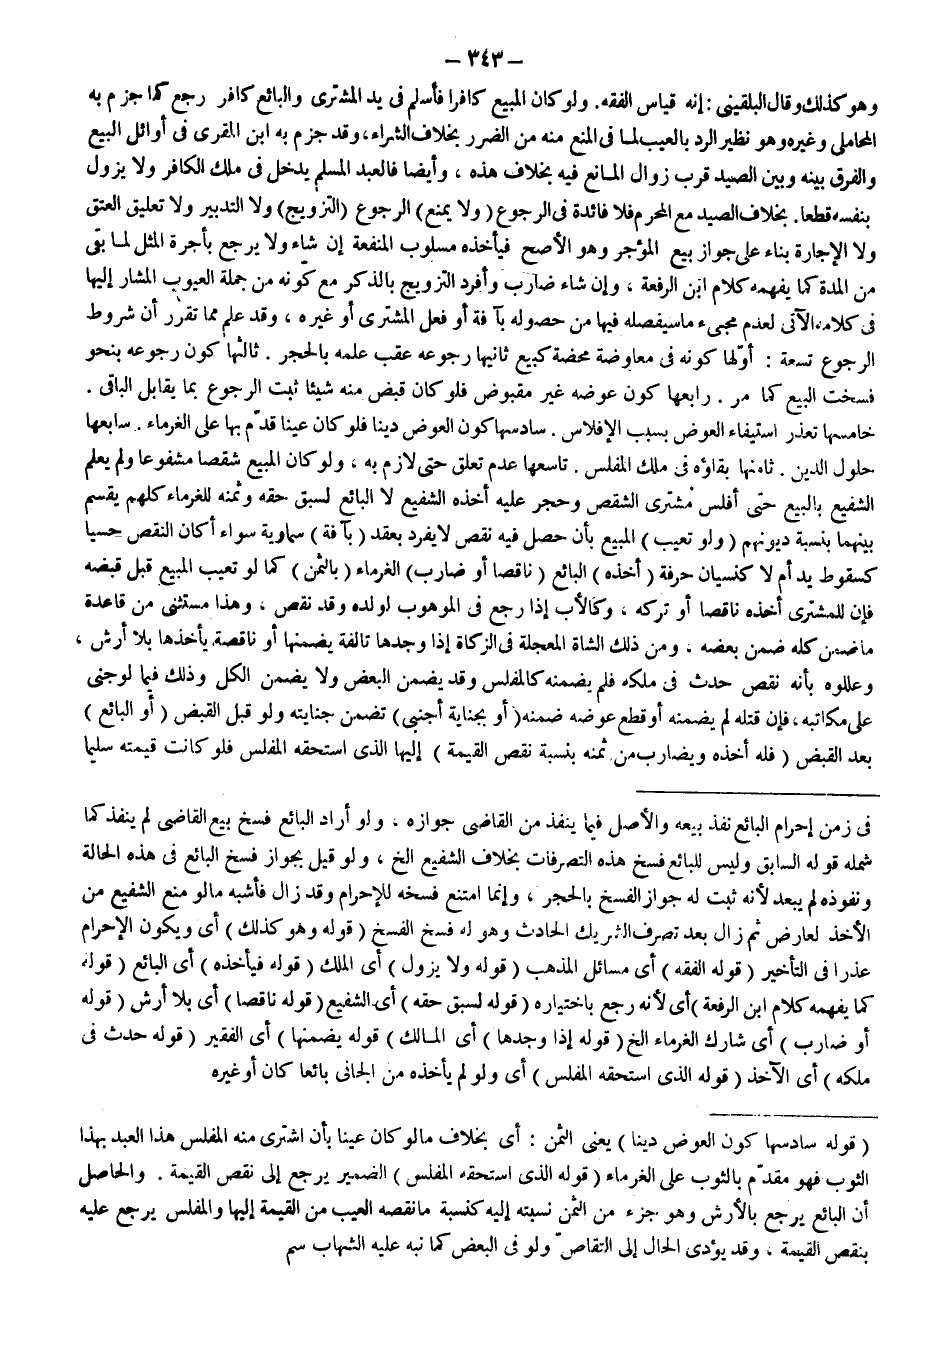 – ٣٤٣ –
وهو كذلك وقال البلقينى : إنه قياس الفقه. ولو كان المبيع كافرا فأسلم فى يد المشترى والبائع كافر رجع كما جزم به
المحاملى وغيره وهو نظير الرد بالعيب لما فى المنع منه من الضرر بخلاف الشراء، وقد جزم به ابن المقرى فى أوائل البيع
والفرق بينه وبين الصيد قرب زوال المانع فيه بخلاف هذه ، وأيضا فالعبد المسلم يدخل فى ملك الكافر ولا يزول
بنفسه قطعا. بخلاف الصيد مع المحرم فلا فائدة فى الرجوع ( ولا يمنع ) الرجوع ( التزويج ) ولا التدبير ولا تعليق العتق
ولا الإجارة بناء على جواز بيع المؤجر وهو الأصح فيأخذه مسلوب المنفعة إن شاء ولا يرجع بأجرة المثل لما بقى
من المدة كما يفهمه كلام ابن الرفعة ، وإن شاء ضارب وأفرد التزويج بالذكر مع كونه من جملة العيوب المشار إليها
فى كلامه الآتى لعدم مجىء ماسيفصله فيها من حصوله بآفة أو فعل المشترى أو غيره ، وقد علم مما تقرر أن شروط
الرجوع تسعة : أوّلها كونه فى معاوضة محضة كبيع ثانيها رجوعه عقب علمه بالحجر . ثالثها كون رجوعه بنحو
فسخت البيع كما مر . رابعها كون عوضه غير مقبوض فلو كان قبض منه شيئا ثبت الرجوع بما يقابل الباقى .
خامسها تعذر استيفاء العوض بسبب الإفلاس . سادسها كون العوض دينا فلو كان عينا قدّم بها على الغرماء . سابعها
حلول الدين . ثامنها بقاؤه فى ملك المفلس . تاسعها عدم تعلق حق لازم به ، ولو كان المبيع شقصا مشفوعا ولم يعلم
الشفيع بالبيع حتى أفلس مشترى الشقص وحجر عليه أخذه الشفيع لا البائع لسبق حقه وثمنه للغرماء كلهم يقسم
بينهما بنسبة ديونهم ( ولو تعيب ) المبيع بأن حصل فيه نقص لايفرد بعقد ( بآفة ) سماوية سواء أكان النقص حسيا
كسقوط يد أم لا كنسيان حرفة ( أخذه ) البائع ( ناقصا أو ضارب) الغرماء ( بالثمن ) كما لو تعيب المبيع قبل قبضه
فإن للمشترى أخذه ناقصا أو تركه ، وكالأب إذا رجع فى الموهوب لولده وقد نقص ، وهذا مستثنى من قاعدة
ماضمن كله ضمن بعضه ، ومن ذلك الشاة المعجلة فى الزكاة إذا وجدها تالفة يضمنها أو ناقصة يأخذها بلا أرش ،
وعللوه بأنه نقص حدث فى ملكه فلم يضمنه كالمفلس وقد يضمن البعض ولا يضمن الكل وذلك فيما لوجنى
على مكاتبه ، فإن قتله لم يضمنه أو قطع عوضه ضمنه( أو بجناية أجنبى ) تضمن جنايته ولو قبل القبض ( أو البائع )
بعد القبض ( فله أخذه ويضارب من ثمنه بنسبة نقص القيمة ) إليها الذى استحقه المفلس فلو كانت قيمته سليما
فى زمن إحرام البائع نفذ بيعه والأصل فيما ينفذ من القاضى جوازه ، ولو أراد البائع فسخ بيع القاضى لم ينفذ كما
شمله قوله السابق وليس للبائع فسخ هذه التصرفات بخلاف الشفيع الخ ، ولو قيل بجواز فسخ البائع فى هذه الحالة
ونفوذه لم يبعد لأنه ثبت له جواز الفسخ بالحجر ، وإنما امتنع فسخه للإحرام وقد زال فأشبه مالو منع الشفيع من
الأخذ لعارض ثم زال بعد تصرف الشريك الحادث وهو له فسخ الفسخ ( قوله وهو كذلك ) أى ويكون الإحرام
عذرا فى التأخير ( قوله الفقه ) أى مسائل المذهب ( قوله ولا يزول ) أى الملك ( قوله فيأخذه ) أى البائع ( قوله
كما يفهمه كلام ابن الرفعة ) أى لأنه رجع باختياره ( قوله لسبق حقه ) أى الشفيع ( قوله ناقصا ) أى بلا أرش ( قوله
أو ضارب ) أى شارك الغرماء الخ ( قوله إذا وجدها ) أى المالك ( قوله يضمنها ) أى الفقير ( قوله حدث فى
ملكه ) أى الآخذ ( قوله الذى استحقه المفلس ) أى ولو لم يأخذه من الجانى بائعا كان أو غيره
( قوله سادسها كون العوض دينا ) يعنى الثمن : أى بخلاف مالو كان عينا بأن اشترى منه المفلس هذا العبد بهذا
الثوب فهو مقدّم بالثوب على الغرماء ( قوله الذى استحقه المفلس ) الضمير يرجع إلى نقص القيمة . والحاصل
أن البائع يرجع بالأرش وهو جزء من الثمن نسبته إليه كنسبة مانقصه العيب من القيمة إليها والمفلس يرجع عليه
بنقص القيمة ، وقد يؤدى الحال إلى التقاصّ ولو فى البعض كما نبه عليه الشهاب سم